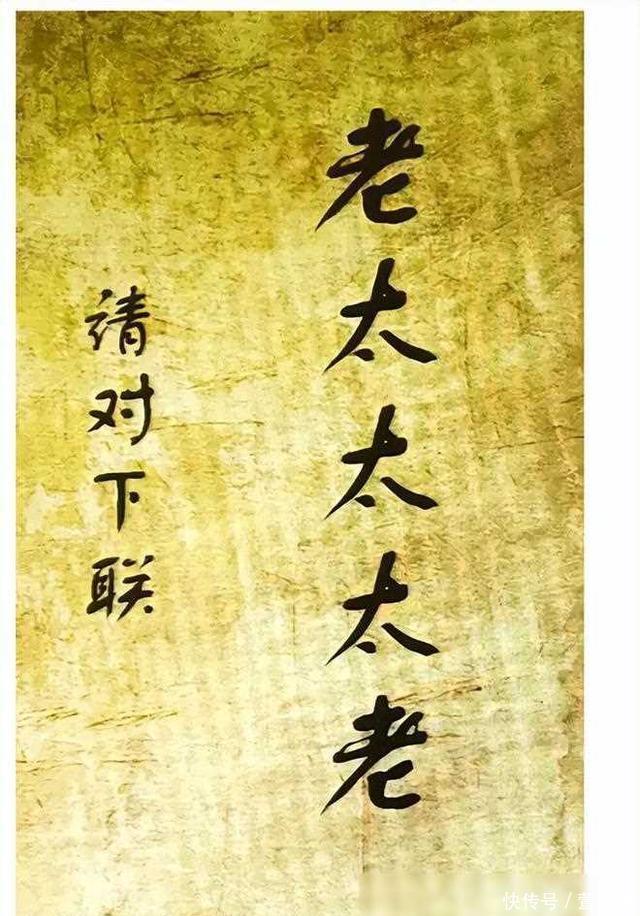 老太太太老
请对下联
快传号／萱